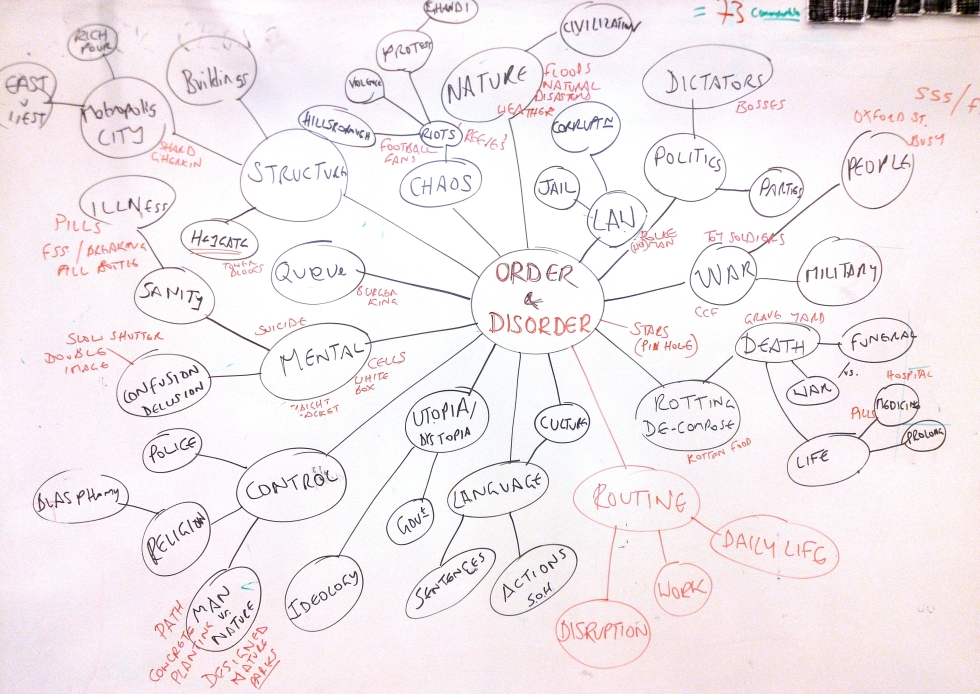 GHANDI
= 73
CIVILIZATION
RICH
POUR
PROTEST
Buildings
NATURE
FLOODS
NATURAL
DISASTERS
WEATHER
DICTATORS
BOSSES
EAST
V
WEST
Metropolis
CITY
VIOLENCE
HILLSBOROUGH
RIOTS
REEVES
FOOTBALL
FANS
CORRUPTN
SHARD
GHERKIN
OXFORD ST.
BUSY
PEOPLE
STRUCTURE
CHAOS
JAIL
LAW
POLITICS
PARTIES
ILLNESS
PILLS
PILL BOTTLE
TOWER
BLOCKS
QUEUE
BURGER
KING
ORDER
&
DISORDER
TOY SOLDIERS
WAR
CCF
MILITARY
SANITY
SUICIDE
STARS
(PIN HOLE)
GRAVE YARD
DEATH
FUNERAL
SLOW SHUTTER
DOUBLE
IMAGE
MENTAL
CELLS
WHITE
BOX
CONFUSION
DELUSION
WAR
VS.
HOSPITAL
UTOPIA/
DYSTOPIA
CULTURE
ROTTING
DE-COMPOSE
ROTTEN FOOD
PILLS
MEDICINE
PROLONG
LIFE
POLICE
BLASPHEMY
CONTROL
LANGUAGE
ROUTINE
RELIGION
GOVt
DAILY LIFE
IDEOLOGY
SENTENCES
ACTIONS
S.O.H.
WORK
DISRUPTION
MAN
VS.
NATURE
PATH
CONCRETE
PLANTING
DESIGNED
NATURE
PARKS